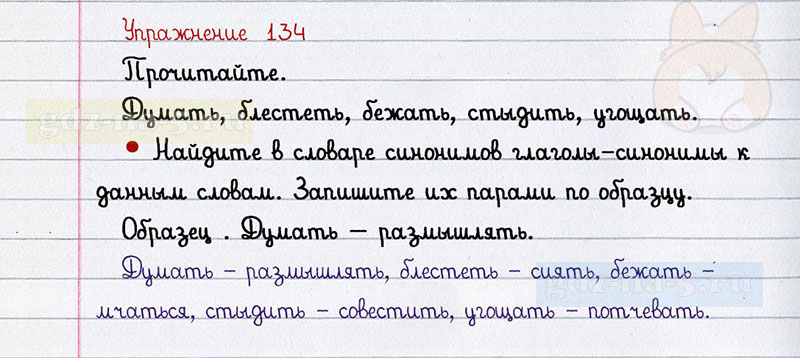 Упражнение 134
Прочитайте.
Думать, блестеть, бежать, стыдить, угощать.
• Найдите в словаре синонимов глаголы-синонимы к
данным словам. Запишите их парами по образцу.
Образец . Думать – размышлять.
Думать – размышлять, блестеть – сиять, бежать –
мчаться, стыдить – совестить, угощать – потчевать.
gdz-na-5.ru
gdz-na-5.ru